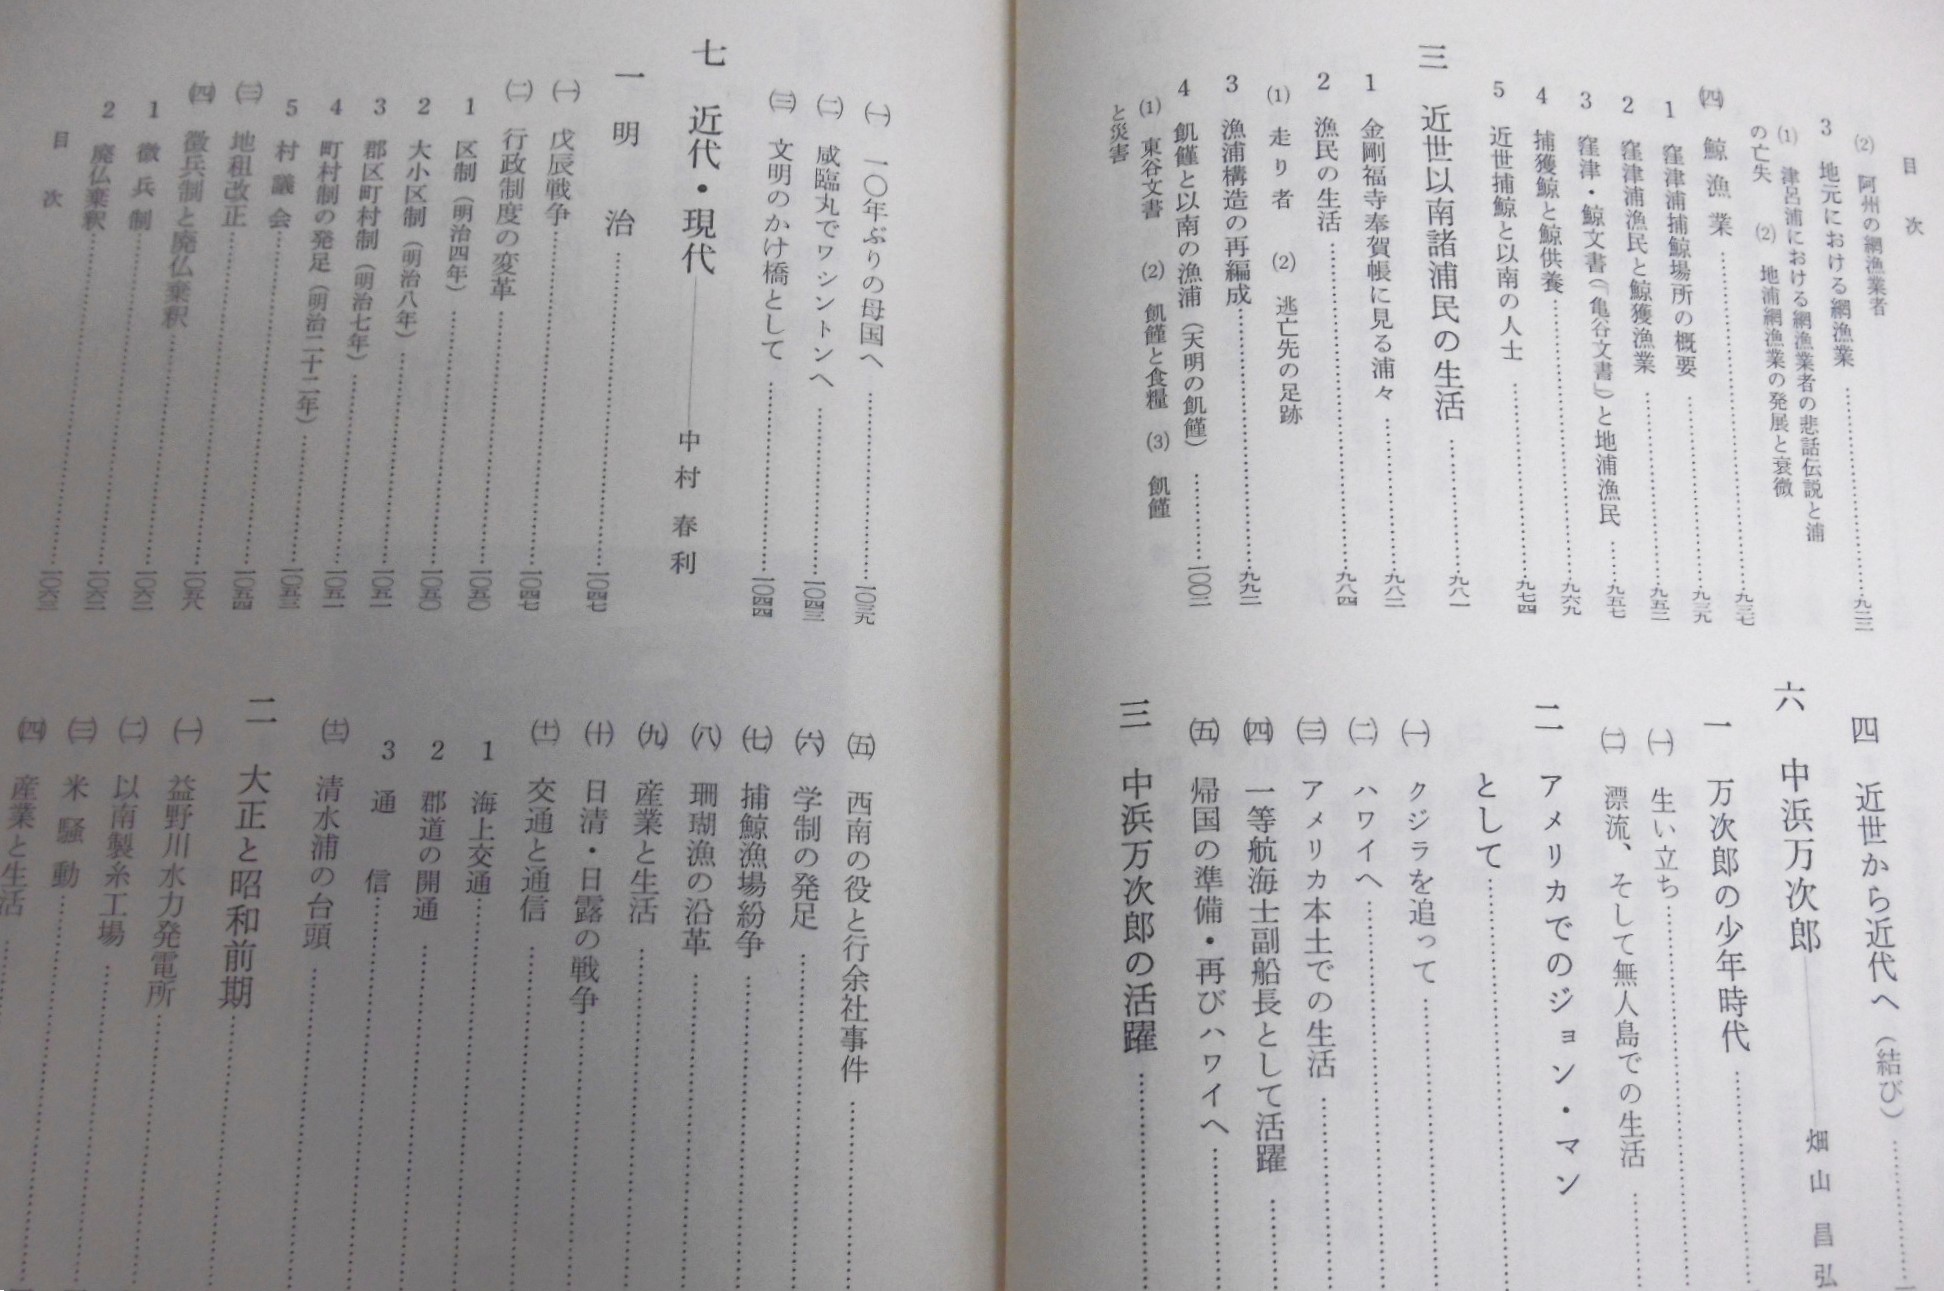 目次
⑵ 阿州の網漁業者
3 地元における網漁業……九二二
⑴ 津呂浦における網漁業者の悲話伝説と浦
の亡失 ⑵ 地浦網漁業の発展と衰微
㈣ 鯨漁業……九三七
1 窪津浦捕鯨場所の概要……九三九
2 窪津浦漁民と鯨獲漁業……九五二
3 窪津・鯨文書(『亀谷文書』)と地浦漁民……九五七
4 捕獲鯨と鯨供養……九六九
5 近世捕鯨と以南の人士……九七四
三 近世以南諸浦民の生活……九八一
1 金剛福寺奉賀帳に見る浦々……九八二
2 漁民の生活……九八四
⑴ 走り者 ⑵ 逃亡先の足跡
3 漁浦構造の再編成……九九二
4 飢饉と以南の漁浦(天明の飢饉)……一〇〇二
⑴ 東谷文書 ⑵ 飢饉と食糧 ⑶ 飢饉
と災害
四 近世から近代へ(結び)……
六 中浜万次郎――畑山昌弘
一 万次郎の少年時代……
㈠ 生い立ち……
㈡ 漂流、そして無人島での生活……
二 アメリカでのジョン・マン
として……
㈠ クジラを追って……
㈡ ハワイへ……
㈢ アメリカ本土での生活……
㈣ 一等航海士副船長として活躍……
㈤ 帰国の準備・再びハワイへ……
三 中浜万次郎の活躍……
㈠ 一〇年ぶりの母国へ……一〇三九
㈡ 咸臨丸でワシントンへ……一〇四三
㈢ 文明のかけ橋として……一〇四四
七 近代・現代――中村春利
一 明治……一〇四七
㈠ 戊辰戦争
㈡ 行政制度の変革……一〇四七
1 区制(明治四年)……一〇五〇
2 大小区制(明治八年)……一〇五〇
3 郡区町村制(明治七年)……一〇五一
4 町村制の発足(明治二十二年)……一〇五一
5 村議会……一〇五三
㈢ 地租改正……一〇五四
㈣ 徴兵制と廃仏棄釈……一〇五六
1 徴兵制……一〇六二
2 廃仏棄釈……一〇六二
目次
一〇六三
㈤ 西南の役と行余社事件……
㈥ 学制の発足……
㈦ 捕鯨漁場紛争……
㈧ 珊瑚漁の沿革……
㈨ 産業と生活……
㈩ 日清・日露の戦争……
(十一) 交通と通信……
1 海上交通……
2 郡道の開通……
3 通信……
(十二) 清水浦の台頭……
二 大正と昭和前期……
㈠ 益野川水力発電所……
㈡ 以南製糸工場……
㈢ 米騒動……
㈣ 産業と生活……